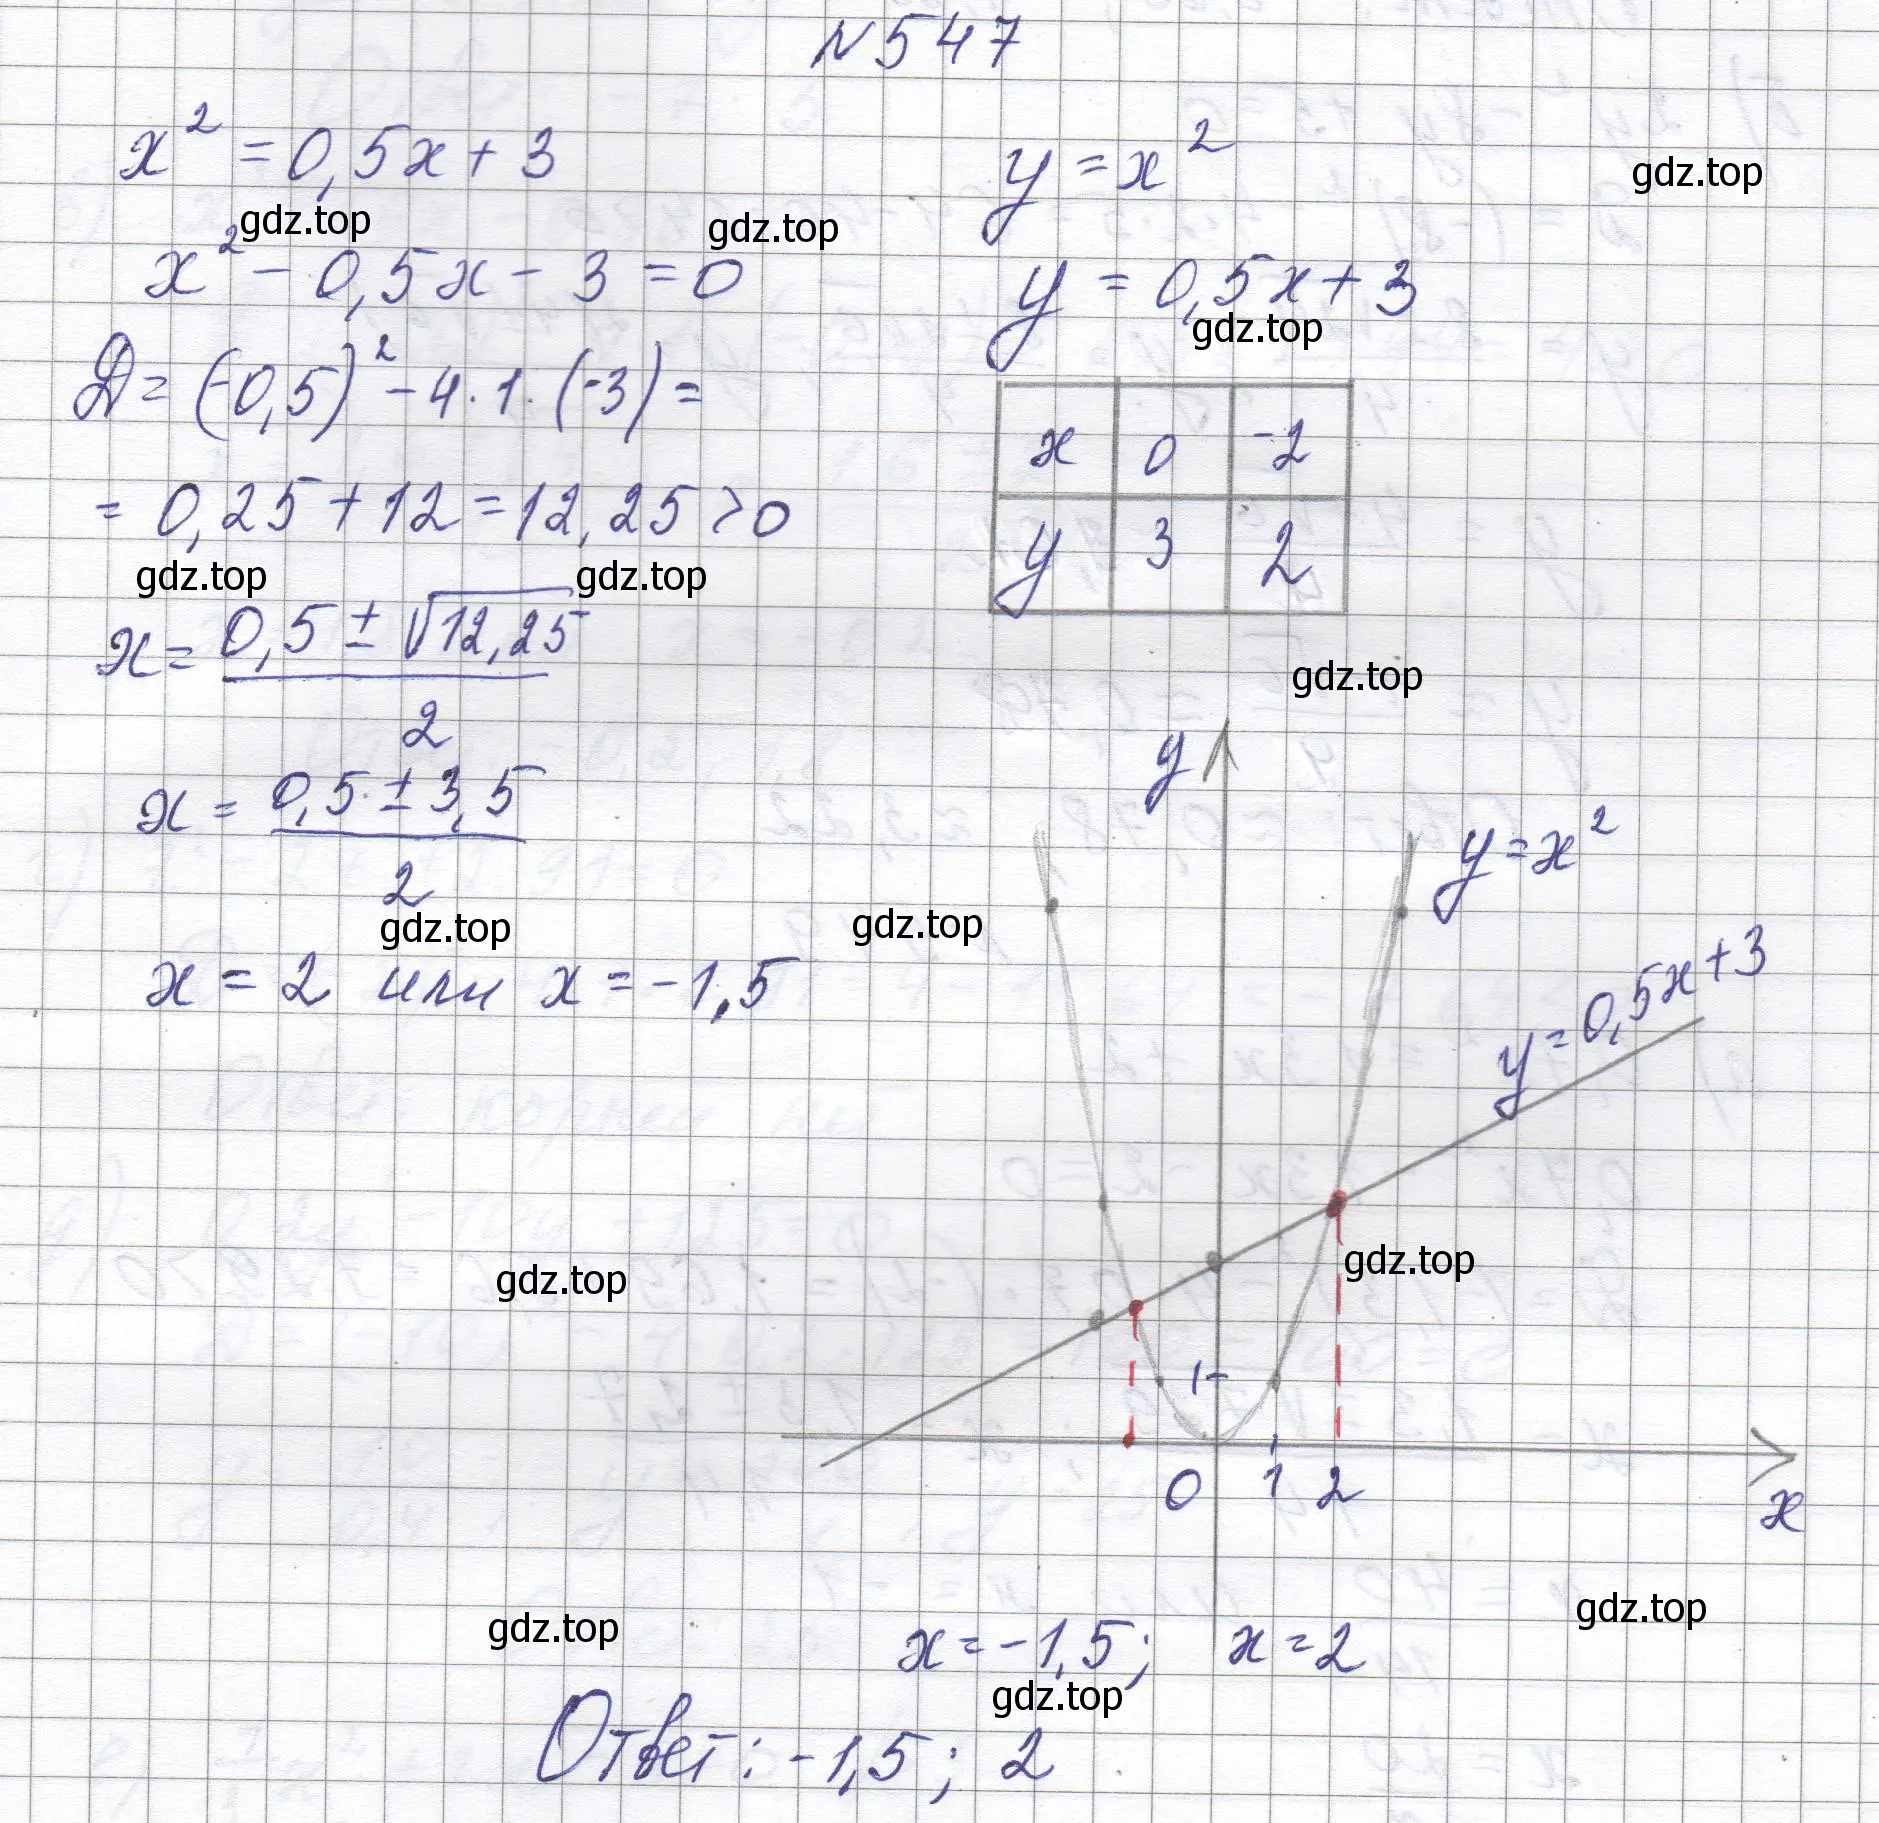 N 547
x² = 0,5x + 3
gdz.top
gdz.top
x² - 0,5x - 3 = 0
D = (-0,5)² - 4 · 1 · (-3) =
= 0,25 + 12 = 12,25 > 0
gdz.top
gdz.top
x = (0,5 ± √12,25) / 2
x = (0,5 ± 3,5) / 2
gdz.top
gdz.top
x = 2 или x = -1,5
y = x²
gdz.top
y = 0,5x + 3
gdz.top
x 0 -2
y 3 2
gdz.top
y
y = x²
y = 0,5x + 3
gdz.top
gdz.top
1
0 1 2
x
gdz.top
gdz.top
x = -1,5; x = 2
gdz.top
Ответ: -1,5; 2